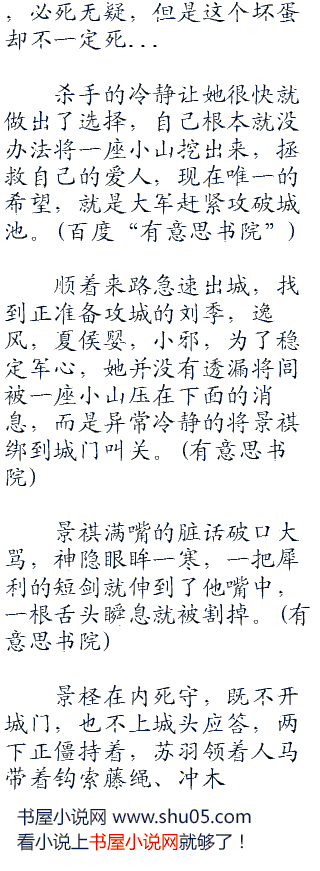 ，必死无疑，但是这个坏蛋
却不一定死...
杀手的冷静让她很快就
做出了选择，自己根本就没
办法将一座小山挖出来，拯
救自己的爱人，现在唯一的
希望，就是大军赶紧攻破城
池。(百度“有意思书院”)
顺着来路急速出城，找
到正准备攻城的刘季，逸
风，夏侯婴，小邪，为了稳
定军心，她并没有透漏将闾
被一座小山压在下面的消
息，而是异常冷静的将景祺
绑到城门叫关。(有意思书
院)
景祺满嘴的脏话破口大
骂，神隐眼眸一寒，一把犀
利的短剑就伸到了他嘴中，
一根舌头瞬息就被割掉。(有
意思书院)
景柽在内死守，既不开
城门，也不上城头应答，两
下正僵持着，苏羽领着人马
带着钩索藤绳、冲木
书屋小说网 www.shu05.com
看小说上书屋小说网就够了！